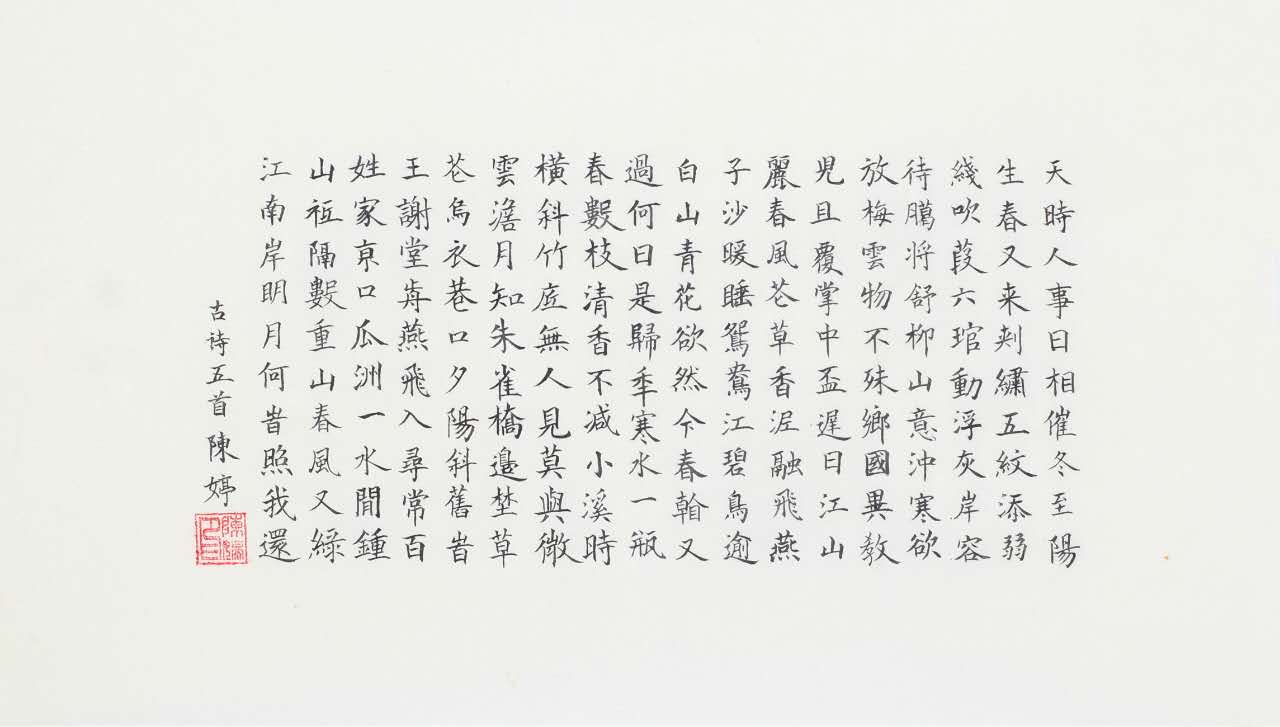 天時人事日相催冬至陽
生春又来刺繡五紋添弱
綫吹葭六琯動浮灰岸容
待臈将舒柳山意沖寒欲
放梅雲物不殊鄉國異教
兒且覆掌中盃遲日江山
麗春風芲草香泥融飛燕
子沙暖睡鴛鴦江碧鳥逾
白山青花欲然今春看又
過何日是歸秊寒水一瓶
春數枝清香不減小溪時
橫斜竹底無人見莫與微
雲澹月知朱雀橋邊埜草
芲烏衣巷口夕陽斜舊旹
王謝堂歬燕飛入尋常百
姓家亰口瓜洲一水間鍾
山祗隔數重山春風又綠
江南岸明月何旹照我還
古诗五首陳婷